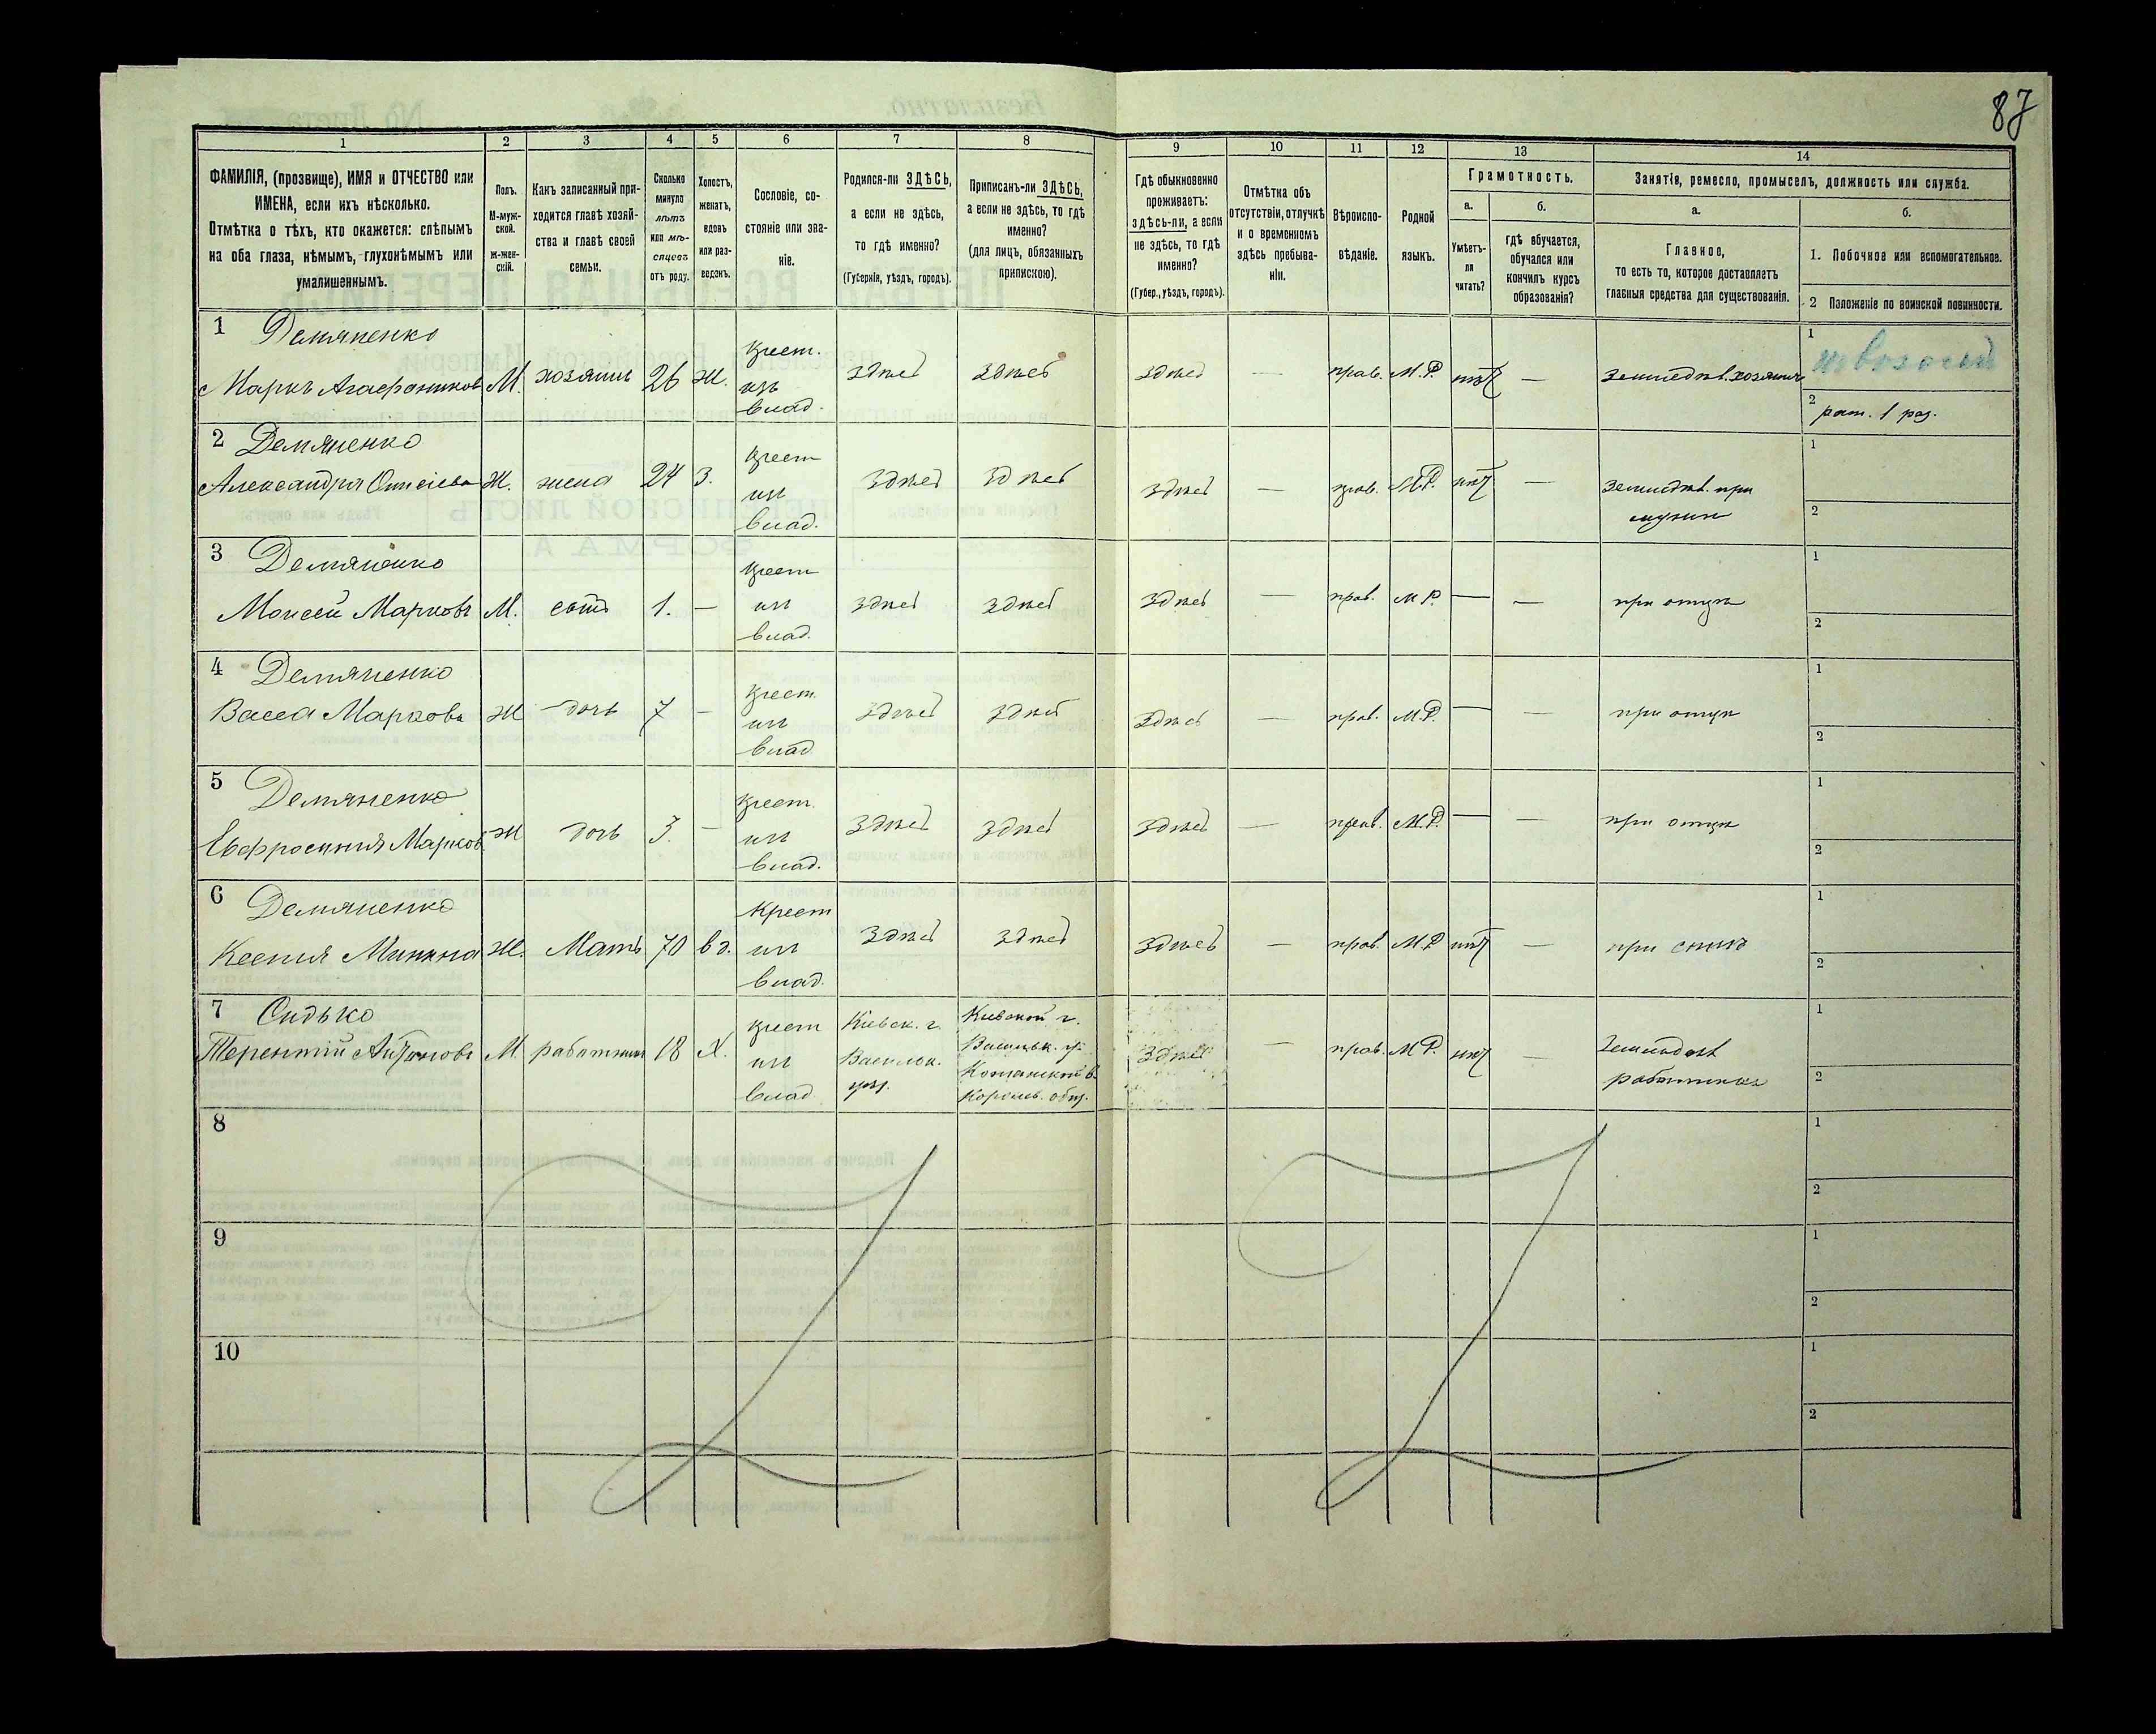 87
1
2
3
4
5
6
7
8
9
10
11
12
13
14
ФАМИЛІЯ, (прозвище), ИМЯ и ОТЧЕСТВО или
ИМЕНА, если ихъ нѣсколько.
Отмѣтка о тѣхъ, кто окажется: слѣпымъ
на оба глаза, нѣмымъ, глухонѣмымъ или
умалишеннымъ.
Полъ.
М-муж-
ской.
ж-жен-
скій.
Какъ записанный при-
ходится главѣ хозяй-
ства и главѣ своей
семьи.
Сколько
минуло
лѣтъ
или мѣ-
сяцевъ
отъ роду.
Холостъ,
женатъ,
вдовъ
или раз-
веденъ.
Сословіе, со-
стояніе или зва-
ніе.
Родился-ли ЗДѢСЬ,
а если не здѣсь,
то гдѣ именно?
(Губернія, уѣздъ, городъ).
Приписанъ-ли ЗДѢСЬ,
а если не здѣсь, то гдѣ
именно?
(для лицъ, обязанныхъ
припискою).
Гдѣ обыкновенно
проживаетъ:
здѣсь-ли, а если
не здѣсь, то гдѣ
именно?
(Губер., уѣздъ, городъ).
Отмѣтка объ
отсутствіи, отлучкѣ
и о временномъ
здѣсь пребыва-
ніи.
Вѣроиспо-
вѣданіе.
Родной
языкъ.
Грамотность.
а.
б.
Умѣетъ-
ли
читать?
гдѣ обучается,
обучался или
кончилъ курсъ
образованія?
Занятіе, ремесло, промыселъ, должность или служба.
а.
б.
Главное,
то есть то, которое доставляетъ
главныя средства для существованія.
1. Побочное или вспомогательное.
2 Положеніе по воинской повинности.
1 Демяненко
Маркъ Агафониковъ М. хозяинъ 26 ж. крест. изъ влад. здѣсь здѣсь здѣсь — прав. М.Р. нѣтъ — земледѣл. хозяинъ
1
2 рат. 1 раз.
2 Демяненко
Александра Онисіева Ж. жена 24 З. крест из влад. здѣсь здѣсь здѣсь — прав. М.Р. нѣтъ — земледѣл. при
мужѣ
1
2
3 Демяненко
Моисей Марковъ М. сынъ 1. — крест из влад. здѣсь здѣсь здѣсь — прав. М.Р. — — при отцѣ
1
2
4 Демяненко
Васса Маркова Ж дочь 7 — крест. из влад здѣсь здѣсь здѣсь — прав. М.Р. — — при отцѣ
1
2
5 Демяненко
Евфросинія Марков. Ж дочь 3. — крест. из влад. здѣсь здѣсь здѣсь — прав. М.Р. — — при отцѣ
1
2
6 Демяненко
Ксенія Минина Ж. Мать 70 вд. Крест из влад. здѣсь здѣсь здѣсь — прав М.Р нѣтъ — при сынѣ
1
2
7 Сидько
Терентій Антоновъ М. работник 18 Х. крест из влад
Кіевск. г.
Васильк.
уѣз.
Кіевской г.
Васильк. у.
здѣсь — прав. М.Р. нѣтъ —
земледѣл
работникъ
1
2
8
1
2
9
1
2
10
1
2